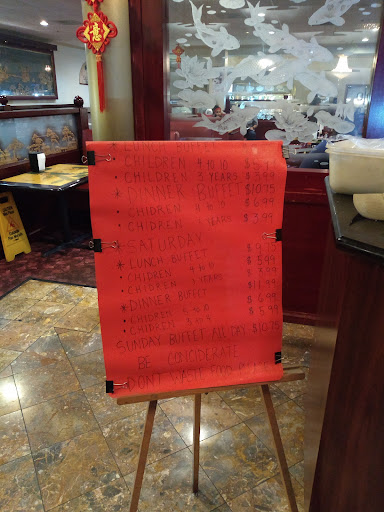 BUFFET
CHILDREN 4 to 10
CHILDREN 3 YEARS $3.99
* DINNER BUFFET $10.75
• CHIDREN 4 to 10 $6.99
• CHIDREN 3 YEARS $3.99
SATURDAY
* LUNCH BUFFET
• CHIDREN 4 to 10 $5.99
• CHIDREN 3 YEARS $3.99
* DINNER BUFFET $11.99
• CHIDREN $6.99
• CHIDREN $5.99
SUNDAY BUFFET ALL DAY $10.75
BE CONCIDERATE
DONT WAST FOOD